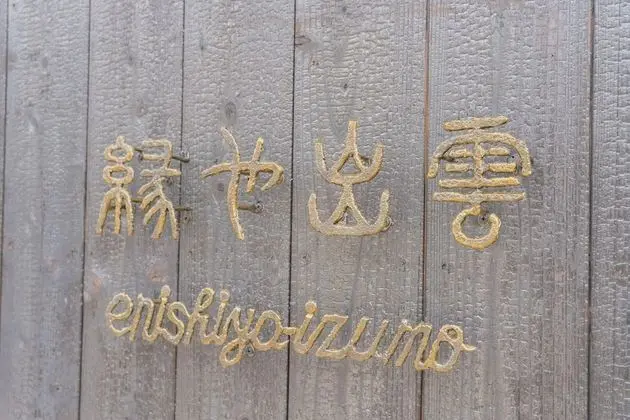 縁や出雲
enishiya-izumo